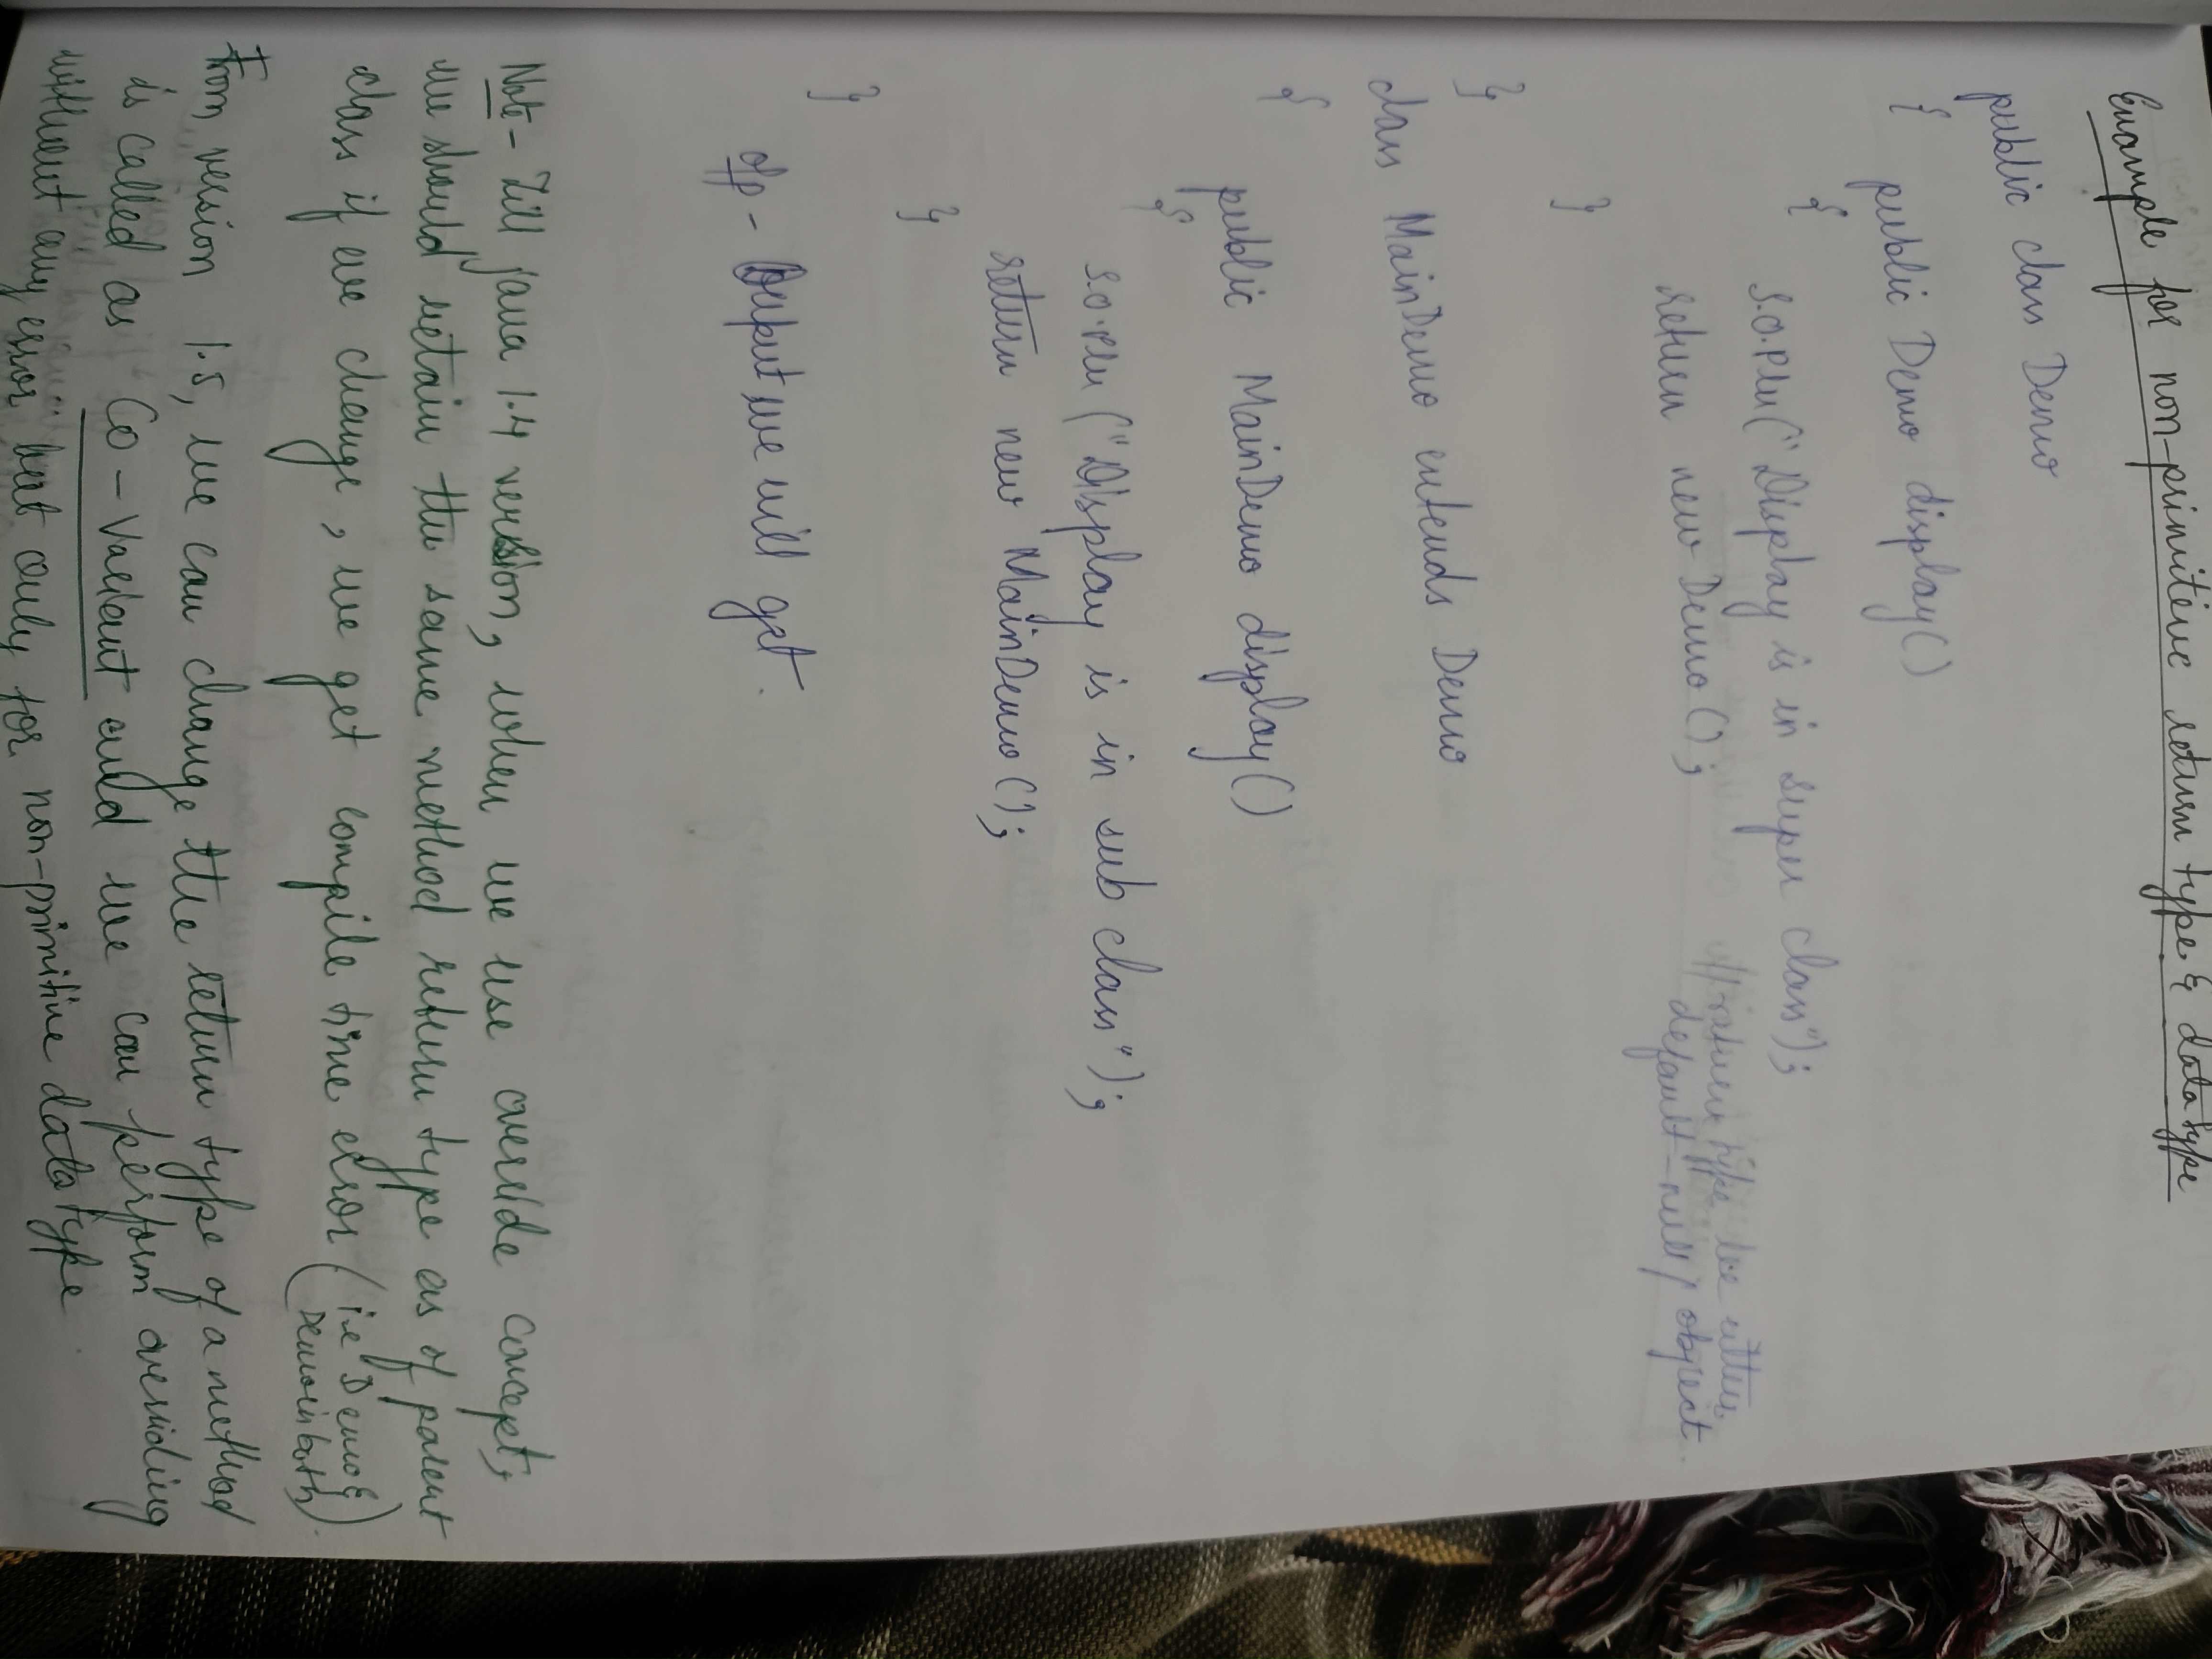 Example for non-primitive return type & data type
public class Demo
{ public Demo display()
{
S.O.Pln("Display is in super class");
return new Demo(); //return type be either
default-null/ object.
}
}
class MainDemo extends Demo
{
public MainDemo display()
{
S.O.Pln ("Display is in sub class");
return new MainDemo();
}
}
o/p - Ouput we will get.
Note- Till java 1.4 version, when we use override concept,
we should retain the same method return type as of parent
class if we change, we get compile time error (i.e Demo &
Demo in both)
From version 1.5, we can change the return type of a method
is called as Co-Variant and we can perform overriding
without any error but only for non-primitive data type